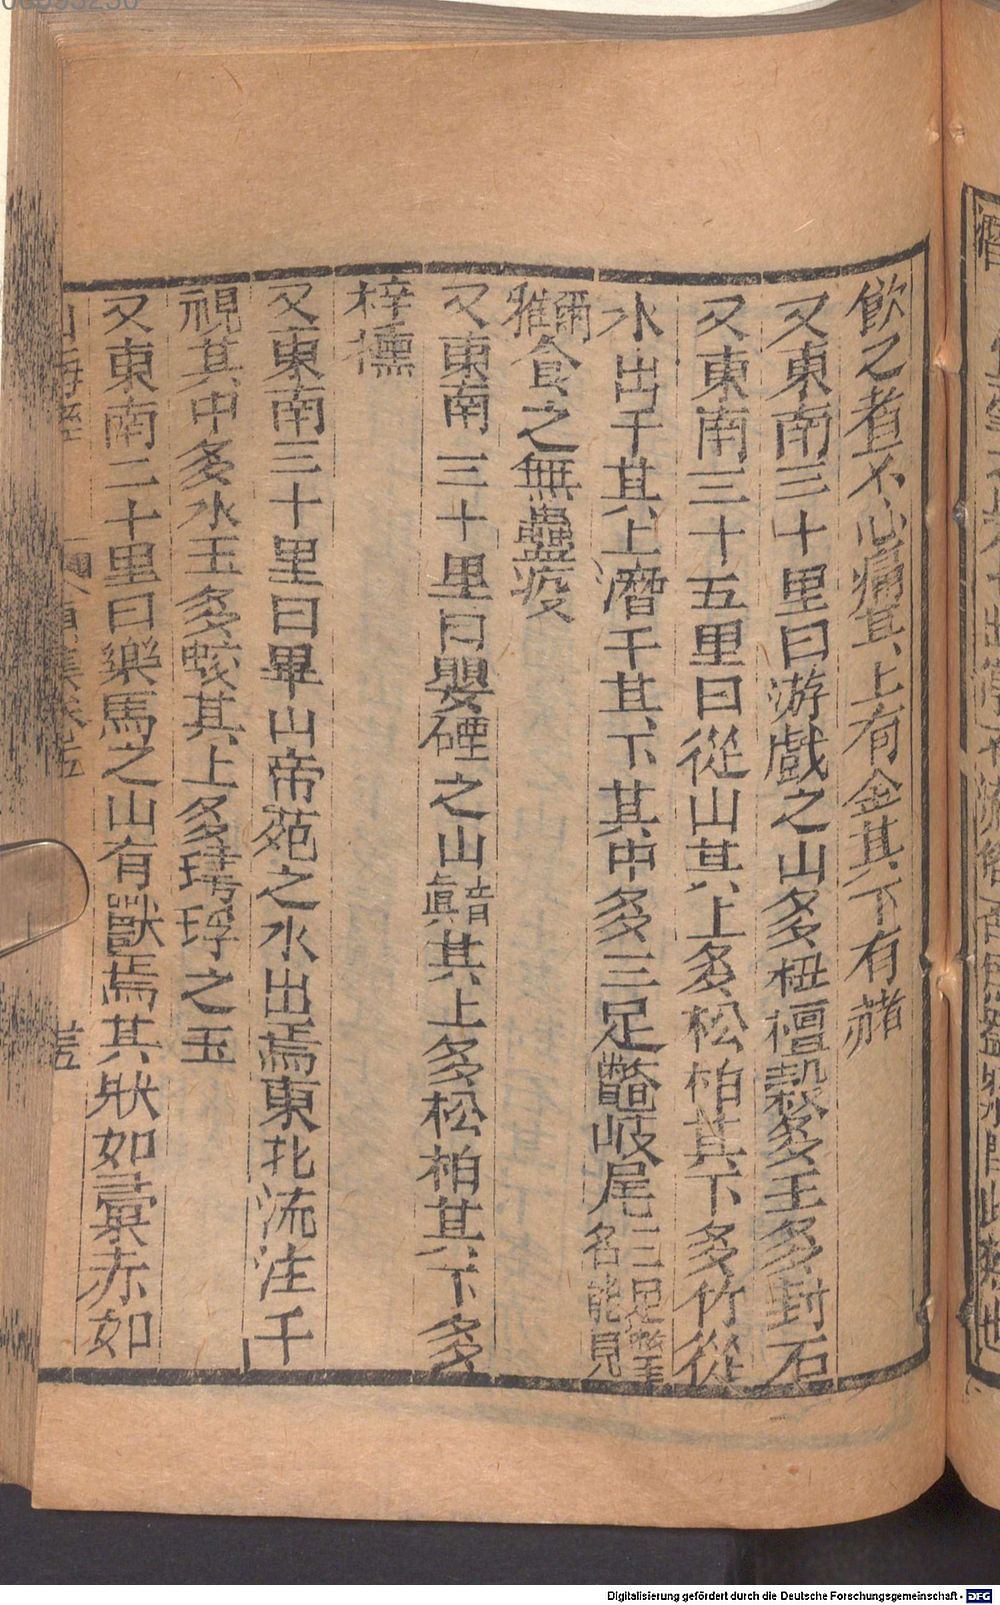 飲之者不心痛其上有金其下有赭
又東南三十里曰游戲之山多杻橿榖多玉多封石
又東南三十五里曰從山其上多松柏其下多竹從
水出于其上潛于其下其中多三足鼈岐尾三足鼈名能見
爾雅食之無蠱疫
又東南三十里曰嬰硜之山音真其上多松柏其下多
梓櫄
又東南三十里曰畢山帝苑之水出焉東北流注于
視其中多水玉多蛟其上多㻬琈之玉
又東南二十里曰樂馬之山有獸焉其狀如彙赤如
Digitalisierung gefördert durch die Deutsche Forschungsgemeinschaft - DFG